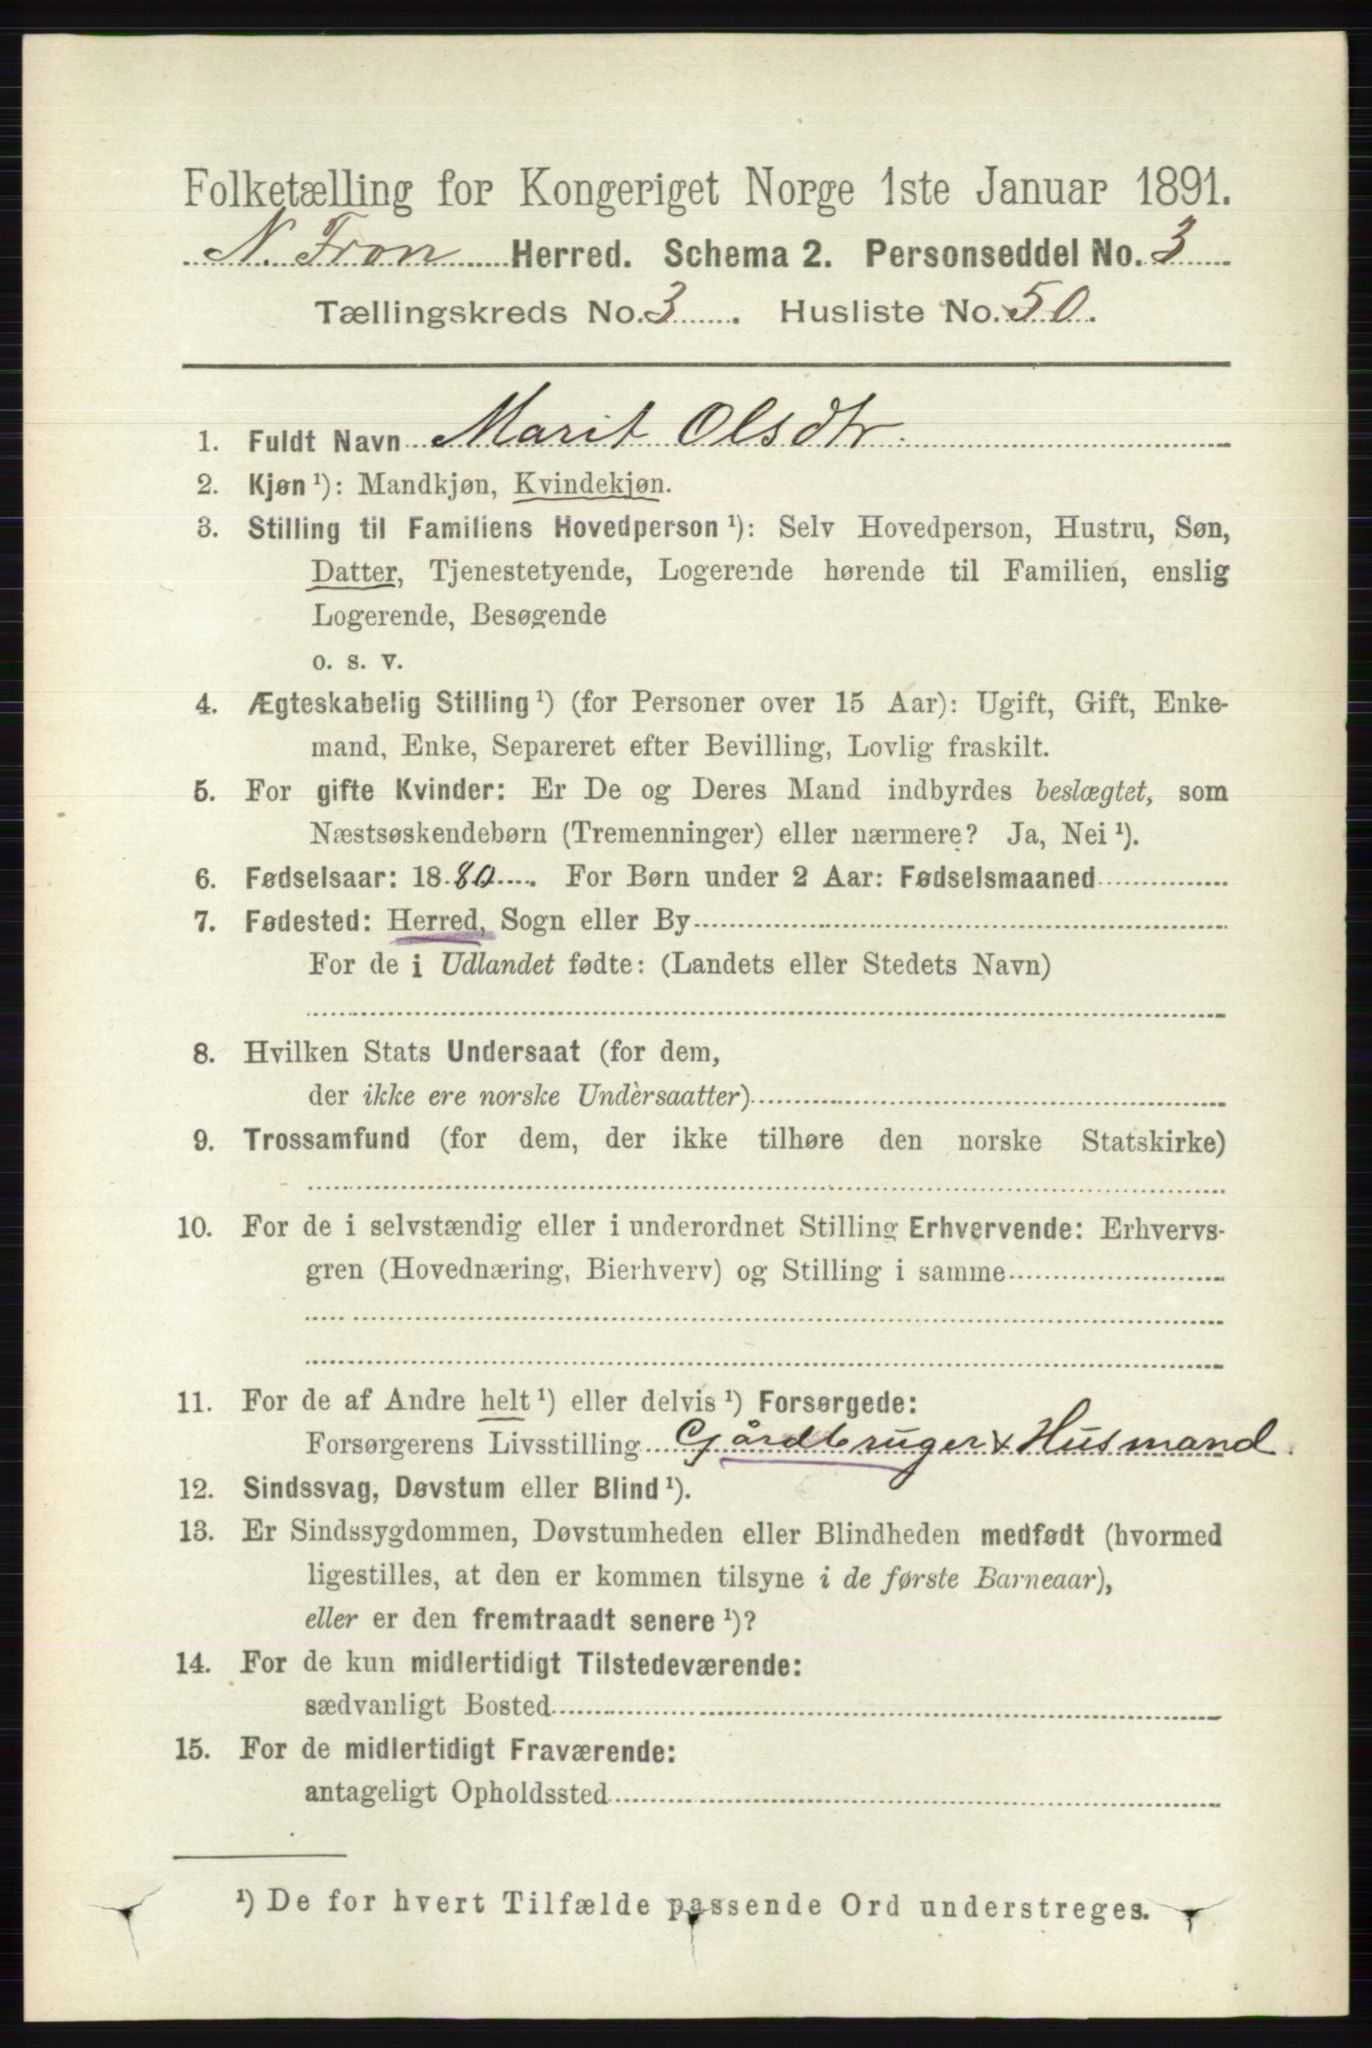 Folketælling for Kongeriget Norge 1ste Januar 1891.
N. Fron Herred. Schema 2. Personseddel No. 3
Tællingskreds No. 3. Husliste No. 50.
1. Fuldt Navn Marit Olsdtr.
2. Kjøn ¹): Mandkjøn, Kvindekjøn.
3. Stilling til Familiens Hovedperson ¹): Selv Hovedperson, Hustru, Søn,
Datter, Tjenestetyende, Logerende hørende til Familien, enslig
Logerende, Besøgende
o. s. v.
4. Ægteskabelig Stilling ¹) (for Personer over 15 Aar): Ugift, Gift, Enke-
mand, Enke, Separeret efter Bevilling, Lovlig fraskilt.
5. For gifte Kvinder: Er De og Deres Mand indbyrdes beslægtet, som
Næstsøskendebørn (Tremenninger) eller nærmere? Ja, Nei ¹).
6. Fødselsaar: 1880. For Børn under 2 Aar: Fødselsmaaned
7. Fødested: Herred, Sogn eller By
For de i Udlandet fødte: (Landets eller Stedets Navn)
8. Hvilken Stats Undersaat (for dem,
der ikke ere norske Undersaatter)
9. Trossamfund (for dem, der ikke tilhøre den norske Statskirke)
10. For de i selvstændig eller i underordnet Stilling Erhvervende: Erhvervs-
gren (Hovednæring, Bierhverv) og Stilling i samme
11. For de af Andre helt ¹) eller delvis ¹) Forsørgede:
Forsørgerens Livsstilling Gårdbruger & Husmand.
12. Sindssvag, Døvstum eller Blind ¹).
13. Er Sindssygdommen, Døvstumheden eller Blindheden medfødt (hvormed
ligestilles, at den er kommen tilsyne i de første Barneaar),
eller er den fremtraadt senere ¹)?
14. For de kun midlertidigt Tilstedeværende:
sædvanligt Bosted
15. For de midlertidigt Fraværende:
antageligt Opholdssted
¹) De for hvert Tilfælde passende Ord understreges.